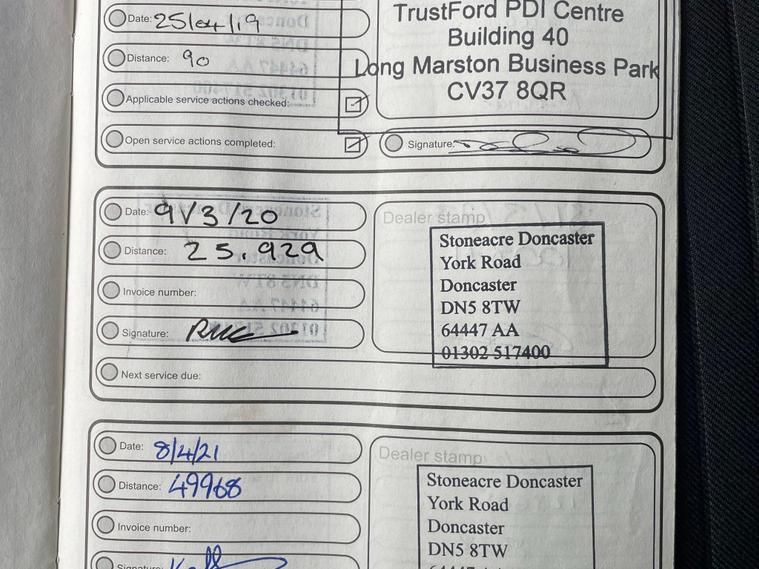 Date: 25/04/19
Distance: 90
Applicable service actions checked:
Open service actions completed:
TrustFord PDI Centre
Building 40
Long Marston Business Park
CV37 8QR
Signature:
Date: 9/3/20
Distance: 25.929
Invoice number:
Signature:
Next service due:
Dealer stamp
Stoneacre Doncaster
York Road
Doncaster
DN5 8TW
64447 AA
01302 517400
Date: 8/4/21
Distance: 49968
Invoice number:
Signature:
Dealer stamp
Stoneacre Doncaster
York Road
Doncaster
DN5 8TW
64447 AA